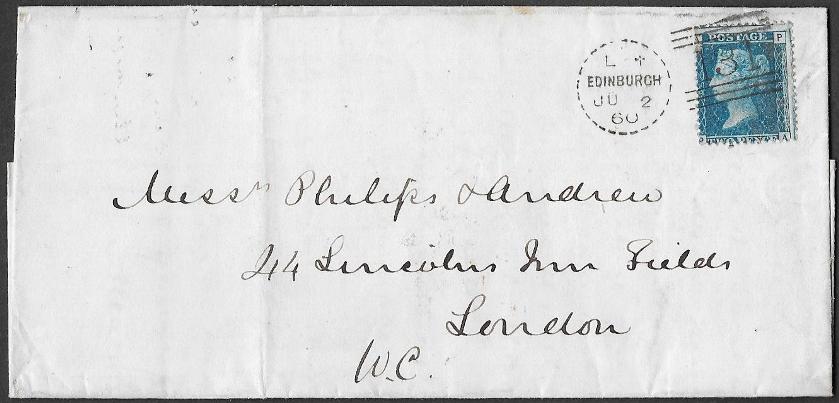 POSTAGE
P
L +
EDINBURGH
JU 2
60
A
Messrs Philips & Andrew
44 Lincolns Inn Fields
London
W.C.